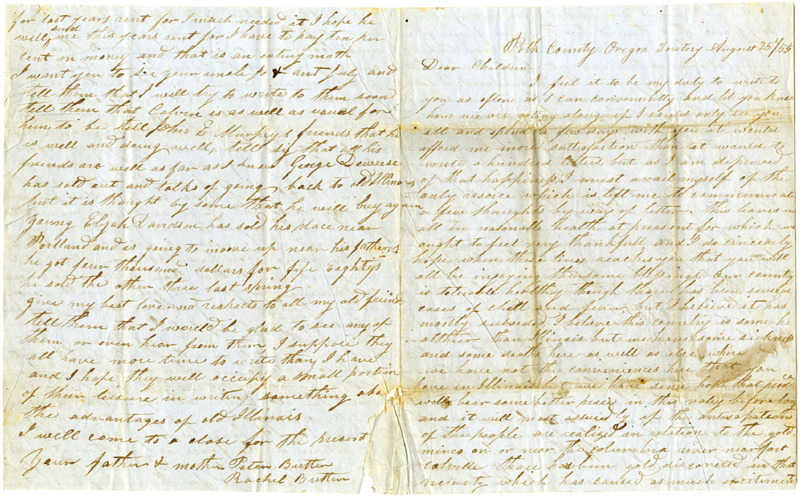 for last years rent for I much needed it I hope he
will send me this years rent for I have to pay ten per
cent on money and that is an eating moth
I want you to see your uncle Jo & ant July and
tell them that I will try to write to them soon
tell them that Calven is as well as usual for
him to be tell John E. Murphy's friends that he
is well and doing well, tell that all his
friends are well as far as I know George Dewese
has sold out and talks of going back to old Illinois
but it is thought by some that he will buy again
young Elijah Davidson has sold his place near
Portland and is going to moove up near his fathers
he got four thousand dollars for fife Eightys
he sold the other three last spring
give my best love and respects to all my old friends
tell them that I would be glad to see any of
them or even hear from them I suppose they
all have more time to write than I have
and I hope they will occupy a small portion
of their leisure in writen something abo
the advantages of old Illinois
I will come to a close for the present
Your father & mother Peter Butler
Rachel Butler
Polk County Oregon Teritory August 25/55
Dear Children
I feel it to be my duty to write to
you as often as I can conveniently and let you know
how we are geting along up I could only see you
all and spend a few days with you it would
afford me more sattisfaction than it would to
write a hundred letters but as I am deprived
of that happiness I must avail myself of the
only resorce which is left me to commune
a few thoughts by way of letter. this leaves us
all in reasonable health at present for which we
ought to feel very thankfull and I do cincearly
hope when these lines reaches you that you will
all be injoying the same blessings. our county
is tolerable healthy though thare has been several
cases of chill and fever but I believe it has
mostly subsided. I believe this country is some
althier than Illinois but we have some sickness
and some deaths here as well as else where
we have not the conveniences here that you
have in Illinois but we have some hope that produce
will bear some better price in this valy before long
and it will most assuredly if the antisapations
of the people are realized in relation to the gold
mines on or near the Columbia river near fort
Colville thare has been gold discovered in that
vicinity which has caused as much excitement